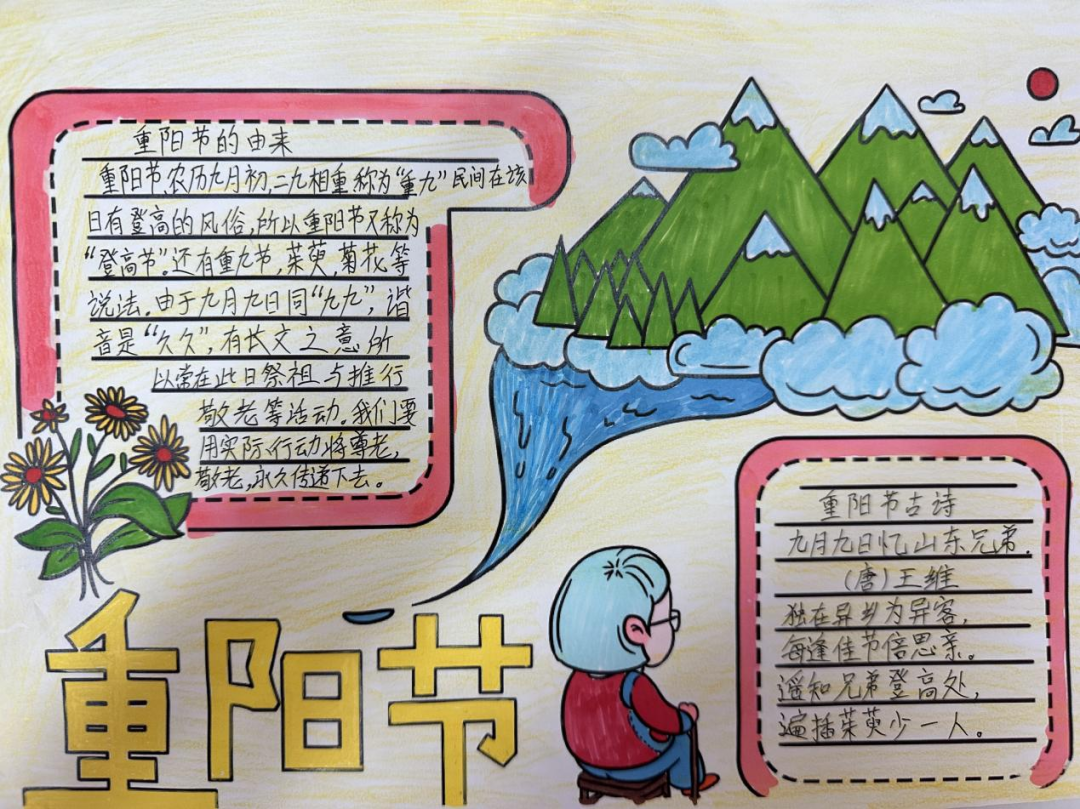 重阳节的由来
重阳节,农历九月初,二九相重,称为“重九”民间在该
日有登高的风俗,所以重阳节又称为
“登高节”。还有重九节,茱萸,菊花等
说法。由于九月九日同“九九”,谐
音是“久久”,有长久之意所
以常在此日祭祖与推行
敬老等活动。我们要
用实际行动将尊老,
敬老,永久传递下去。
重阳节古诗
九月九日忆山东兄弟.
(唐)王维
独在异乡为异客,
每逢佳节倍思亲。
遥知兄弟登高处,
遍插茱萸少一人。
重阳节